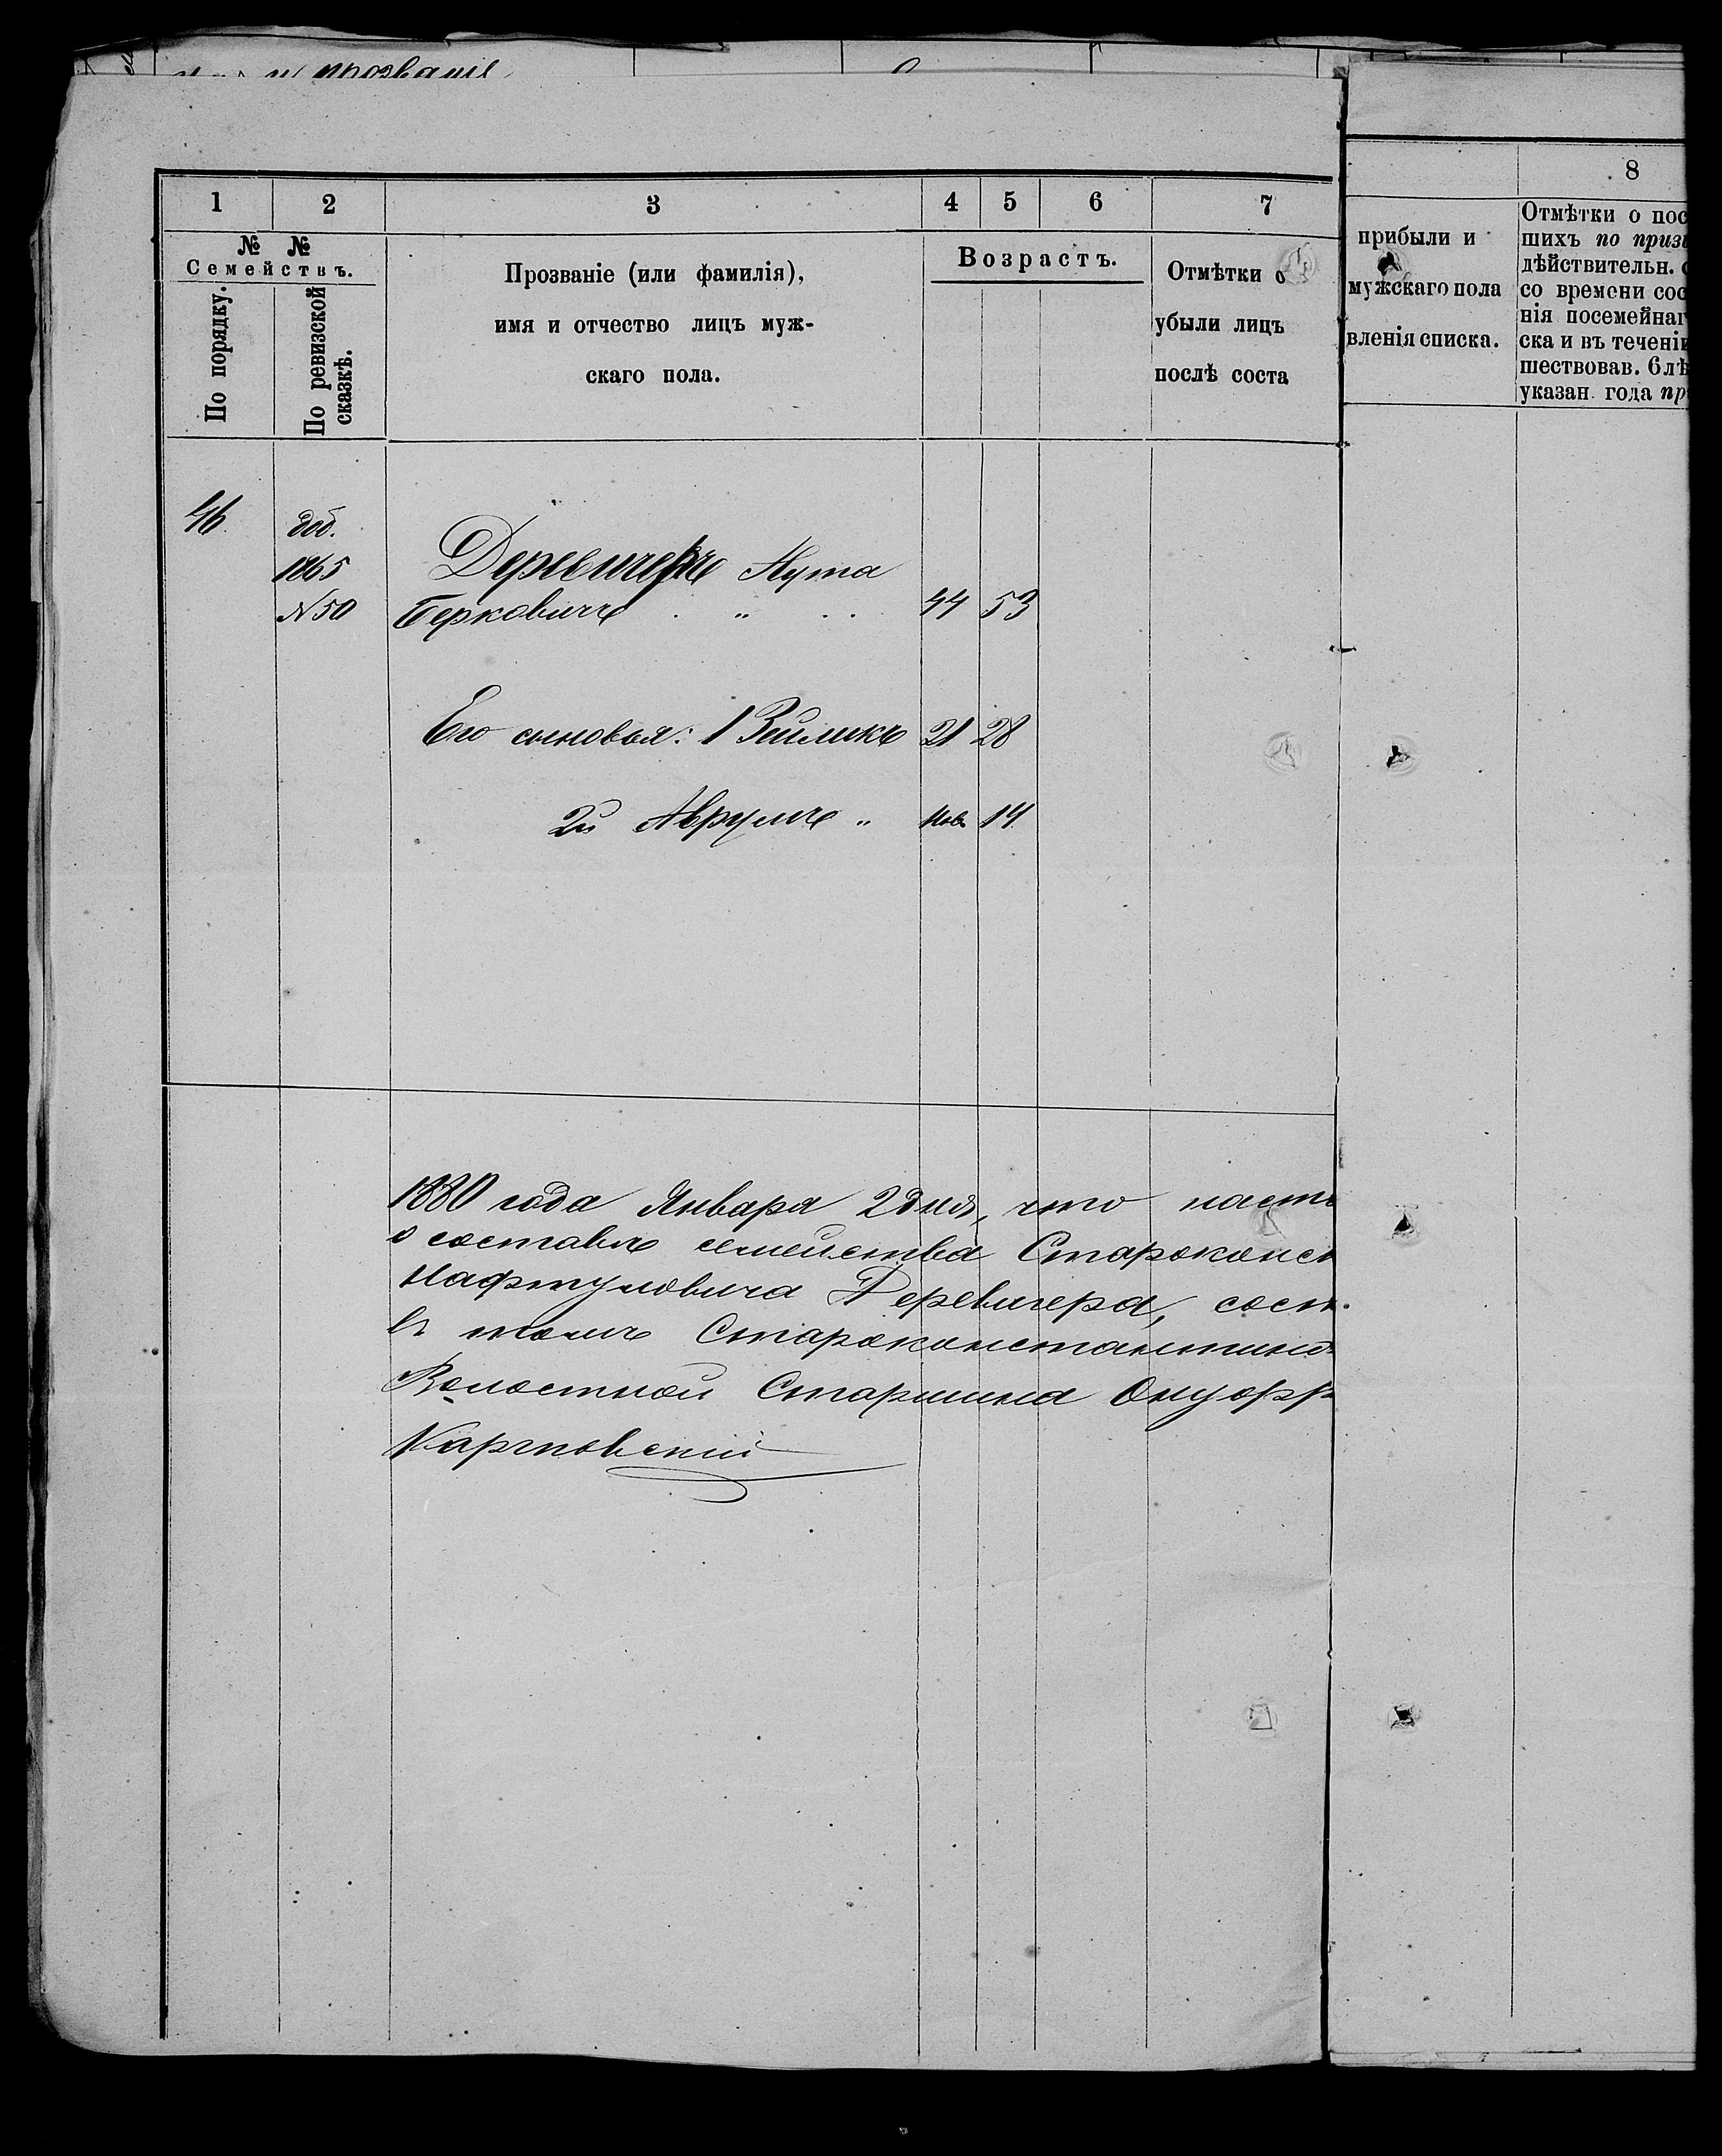 и прозваніе
1
2
3
4
5
6
7
8
№ №
Семействъ.
По порядку.
По ревизской
сказкѣ.
Прозваніе (или фамилія),
имя и отчество лицъ муж-
скаго пола.
Возрастъ.
Отмѣтки о
убыли лицъ
послѣ соста
прибыли и
мужскаго пола
вленія списка.
Отмѣтки о пос
шихъ по приз
дѣйствительн.
со времени сос
нія посемейнаг
ска и въ теченіи
шествовав. 6 лѣ
указан. года пр
46. доб.
1865 Деревичеръ Нута
№50 Берковичъ . „ . . 44 53
Его сыновья: 1 Зейликъ 21 28
2й Аврумъ „ Нов. 14
1880 года Января 2 дня, что наст
о составѣ семейства Староконст
Нафтуловича Деревичера, сост.
въ томъ Староконстантинов
Волостной Старшина Онуфр